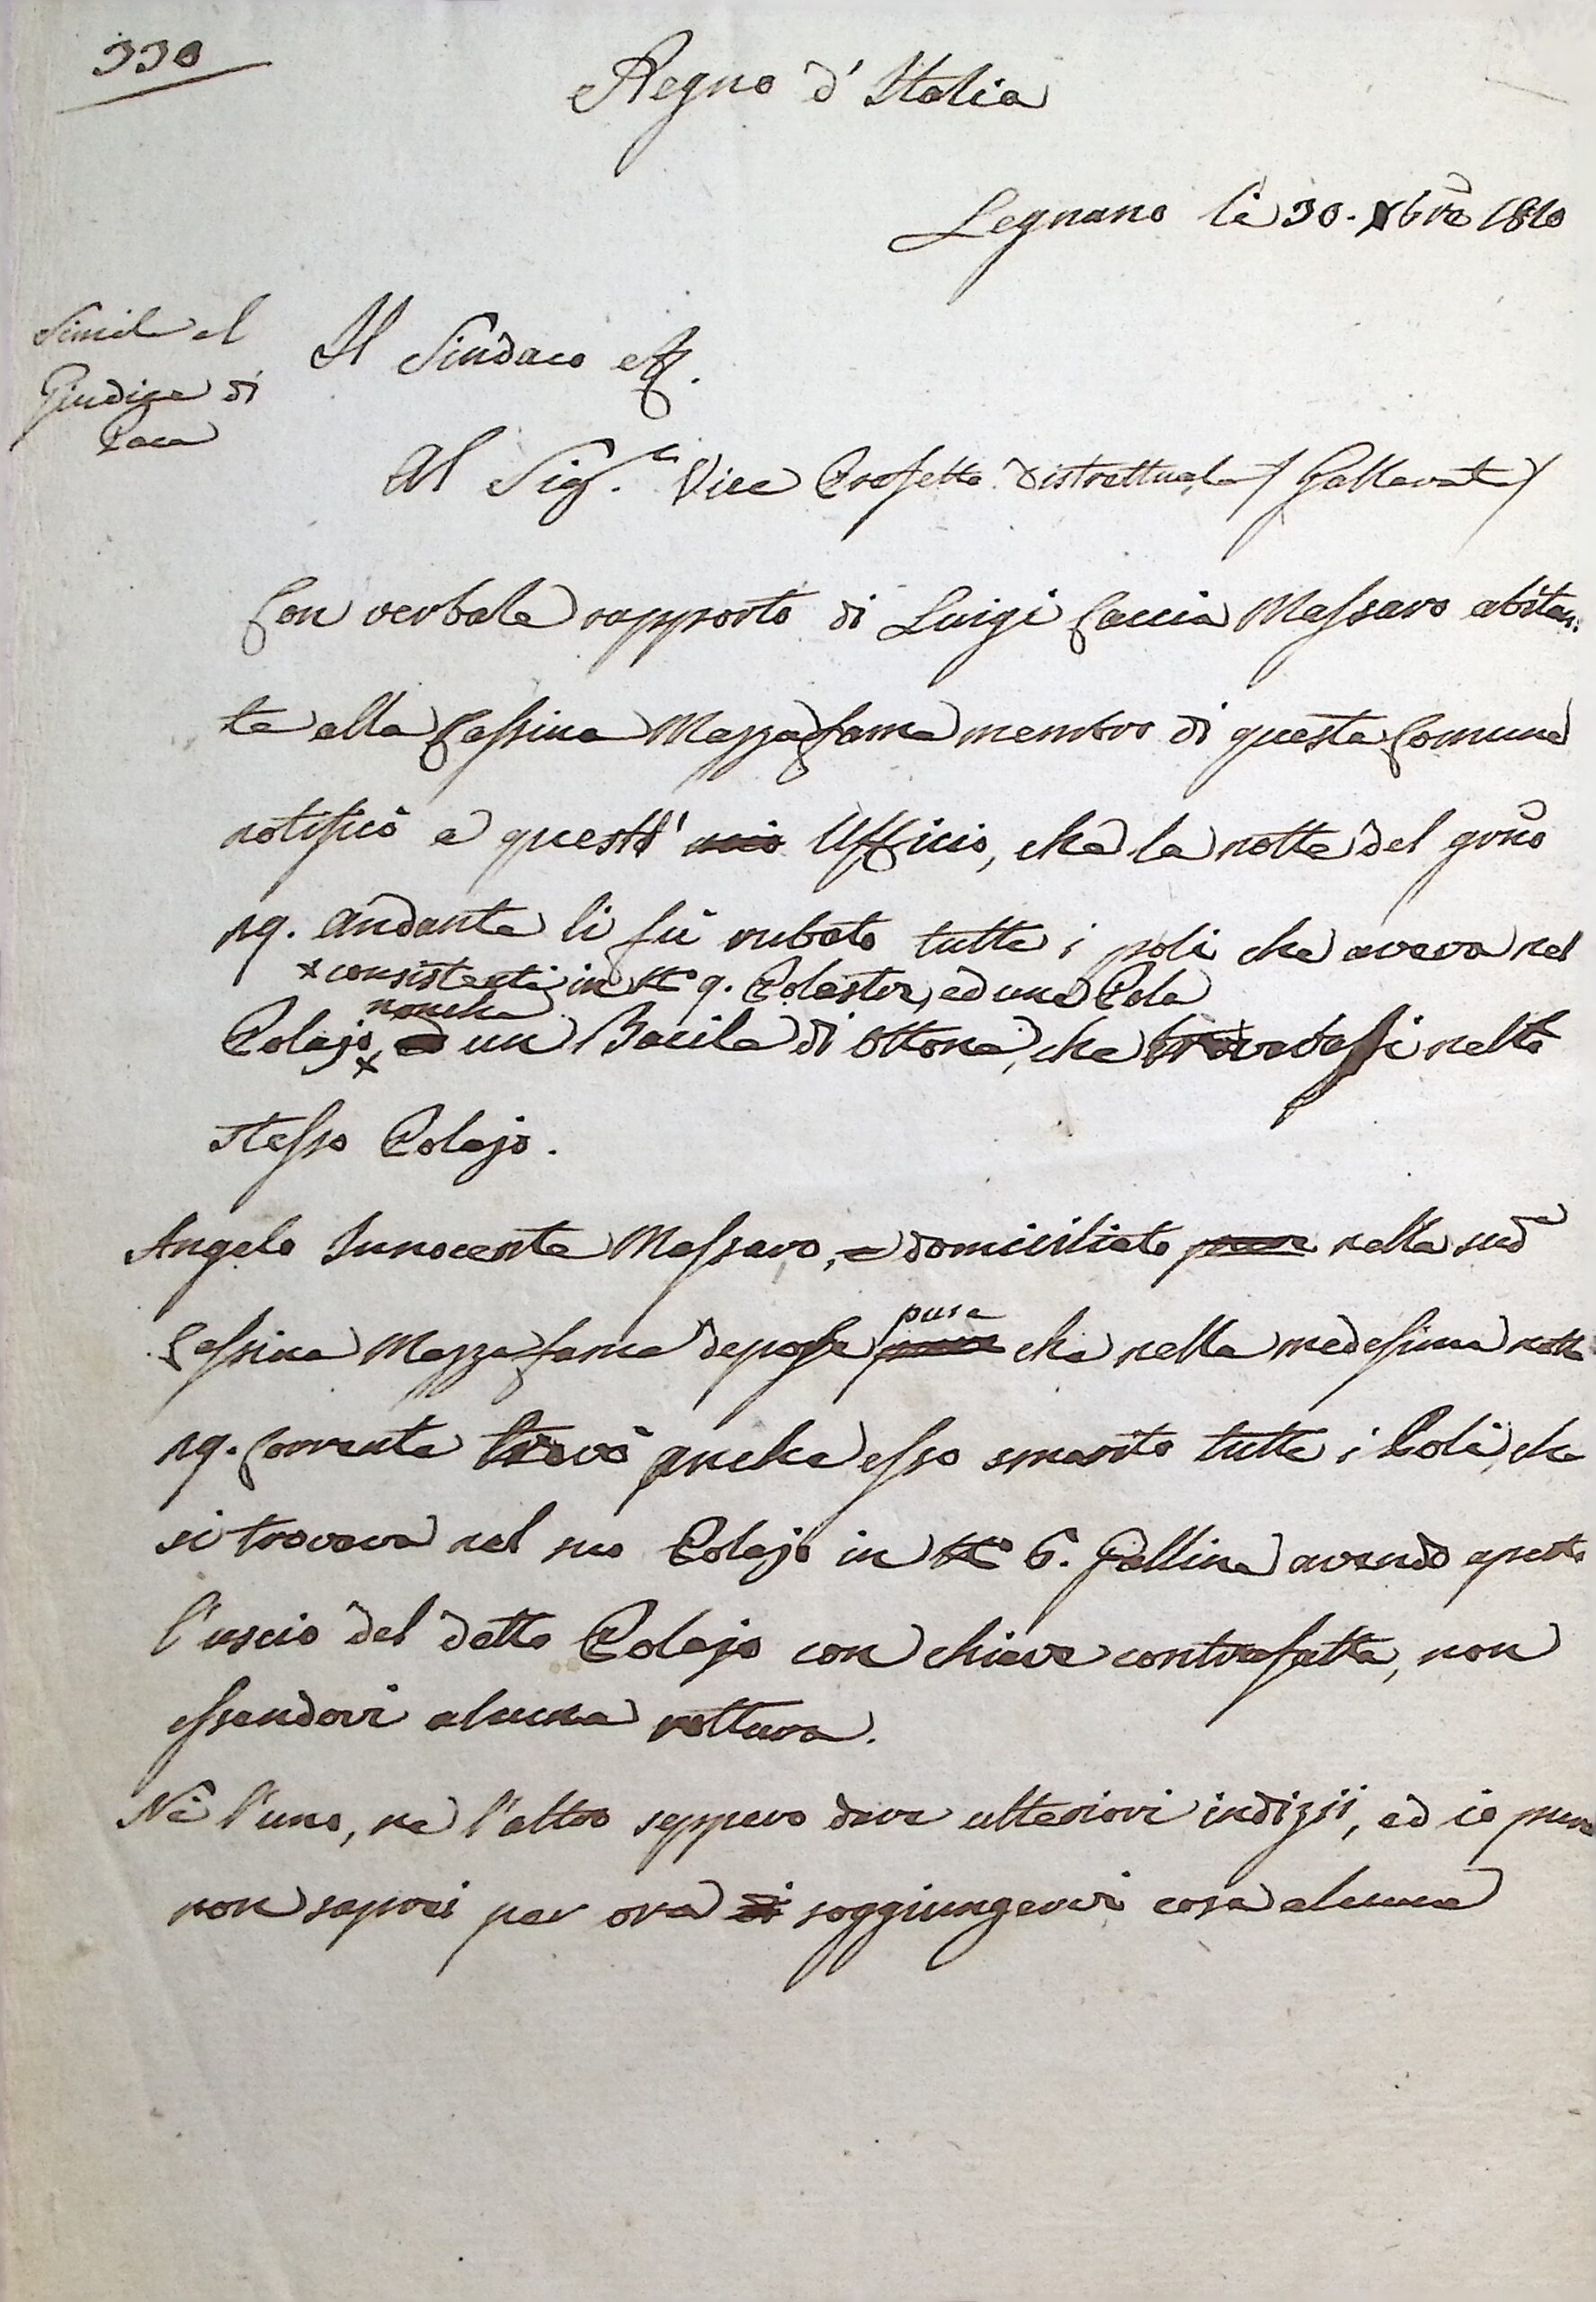 330
Regno d'Italia
Legnano li 30. Xbre 1810
Simile al
Giudice di
Pace
Il Sindaco
Al Sig.r Vice Prefetto Distrettuale / Gallarate /
Con verbale rapporto di Luigi Caccia Massaro abitan:
te alla Cassina Mazzafame membro di questa Comune
notificò a quest' mio Ufficio, che la notte del giorno
19. andante li fù rubato tutte i poli che aveva nel
× consistenti in N.o 9. Polastri, ed una Pola
nonche
Polajo, × ed un Bacile di Ottone, che trovavasi nello
stesso Polajo.
Angelo Innocente Massaro, e domiciliato pure nella sud.a
pure
Cassina Mazzafame depose pure che nella medesima notte
19. corrente trovò anche esso smarito tutte i Poli, che
si trovava nel suo Polajo in N.o 6. Galline avendo aperto
l'uscio del detto Polajo con chiave contrafatta, non
essendovi alcuna rottura.
Nè l'uno, ne l'altro seppero dare ulteriori indizii, ed io pure
non saprei per ora di soggiungervi cosa alcuna